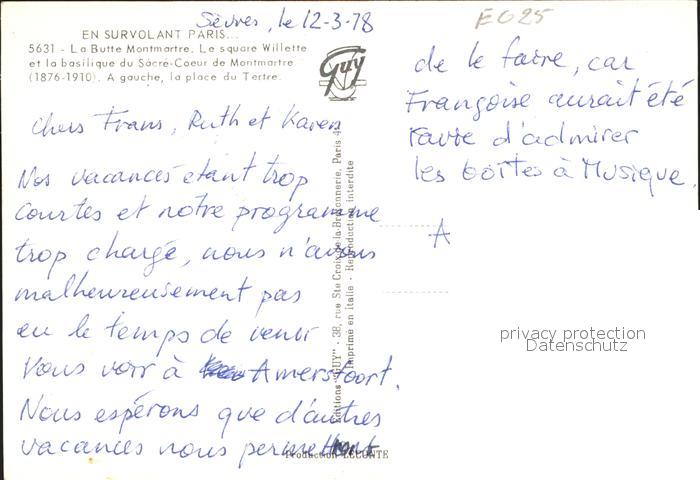 Sèvres, le 12-3-78
E025
EN SURVOLANT PARIS...
5631 - La Butte Montmartre. Le square Willette
et la basilique du Sacré-Coeur de Montmartre
(1876-1910). A gauche, la place du Tertre.
Guy
Chers Frans, Ruth et Karen
Nos vacances étant trop
courtes et notre programme
trop chargé, nous n'avons
malheureusement pas
eu le temps de venir
vous voir à Amersfoort.
Nous espérons que d'autres
vacances nous permettront
de le faire, car
Françoise aurait été
ravie d'admirer
les boîtes à Musique.
A
Editions "GUY" - 38, rue Ste Croix-de-la-Bretonnerie, Paris 4e
Imprimé en Italie - Reproduction interdite
Production LECONTE
privacy protection
Datenschutz